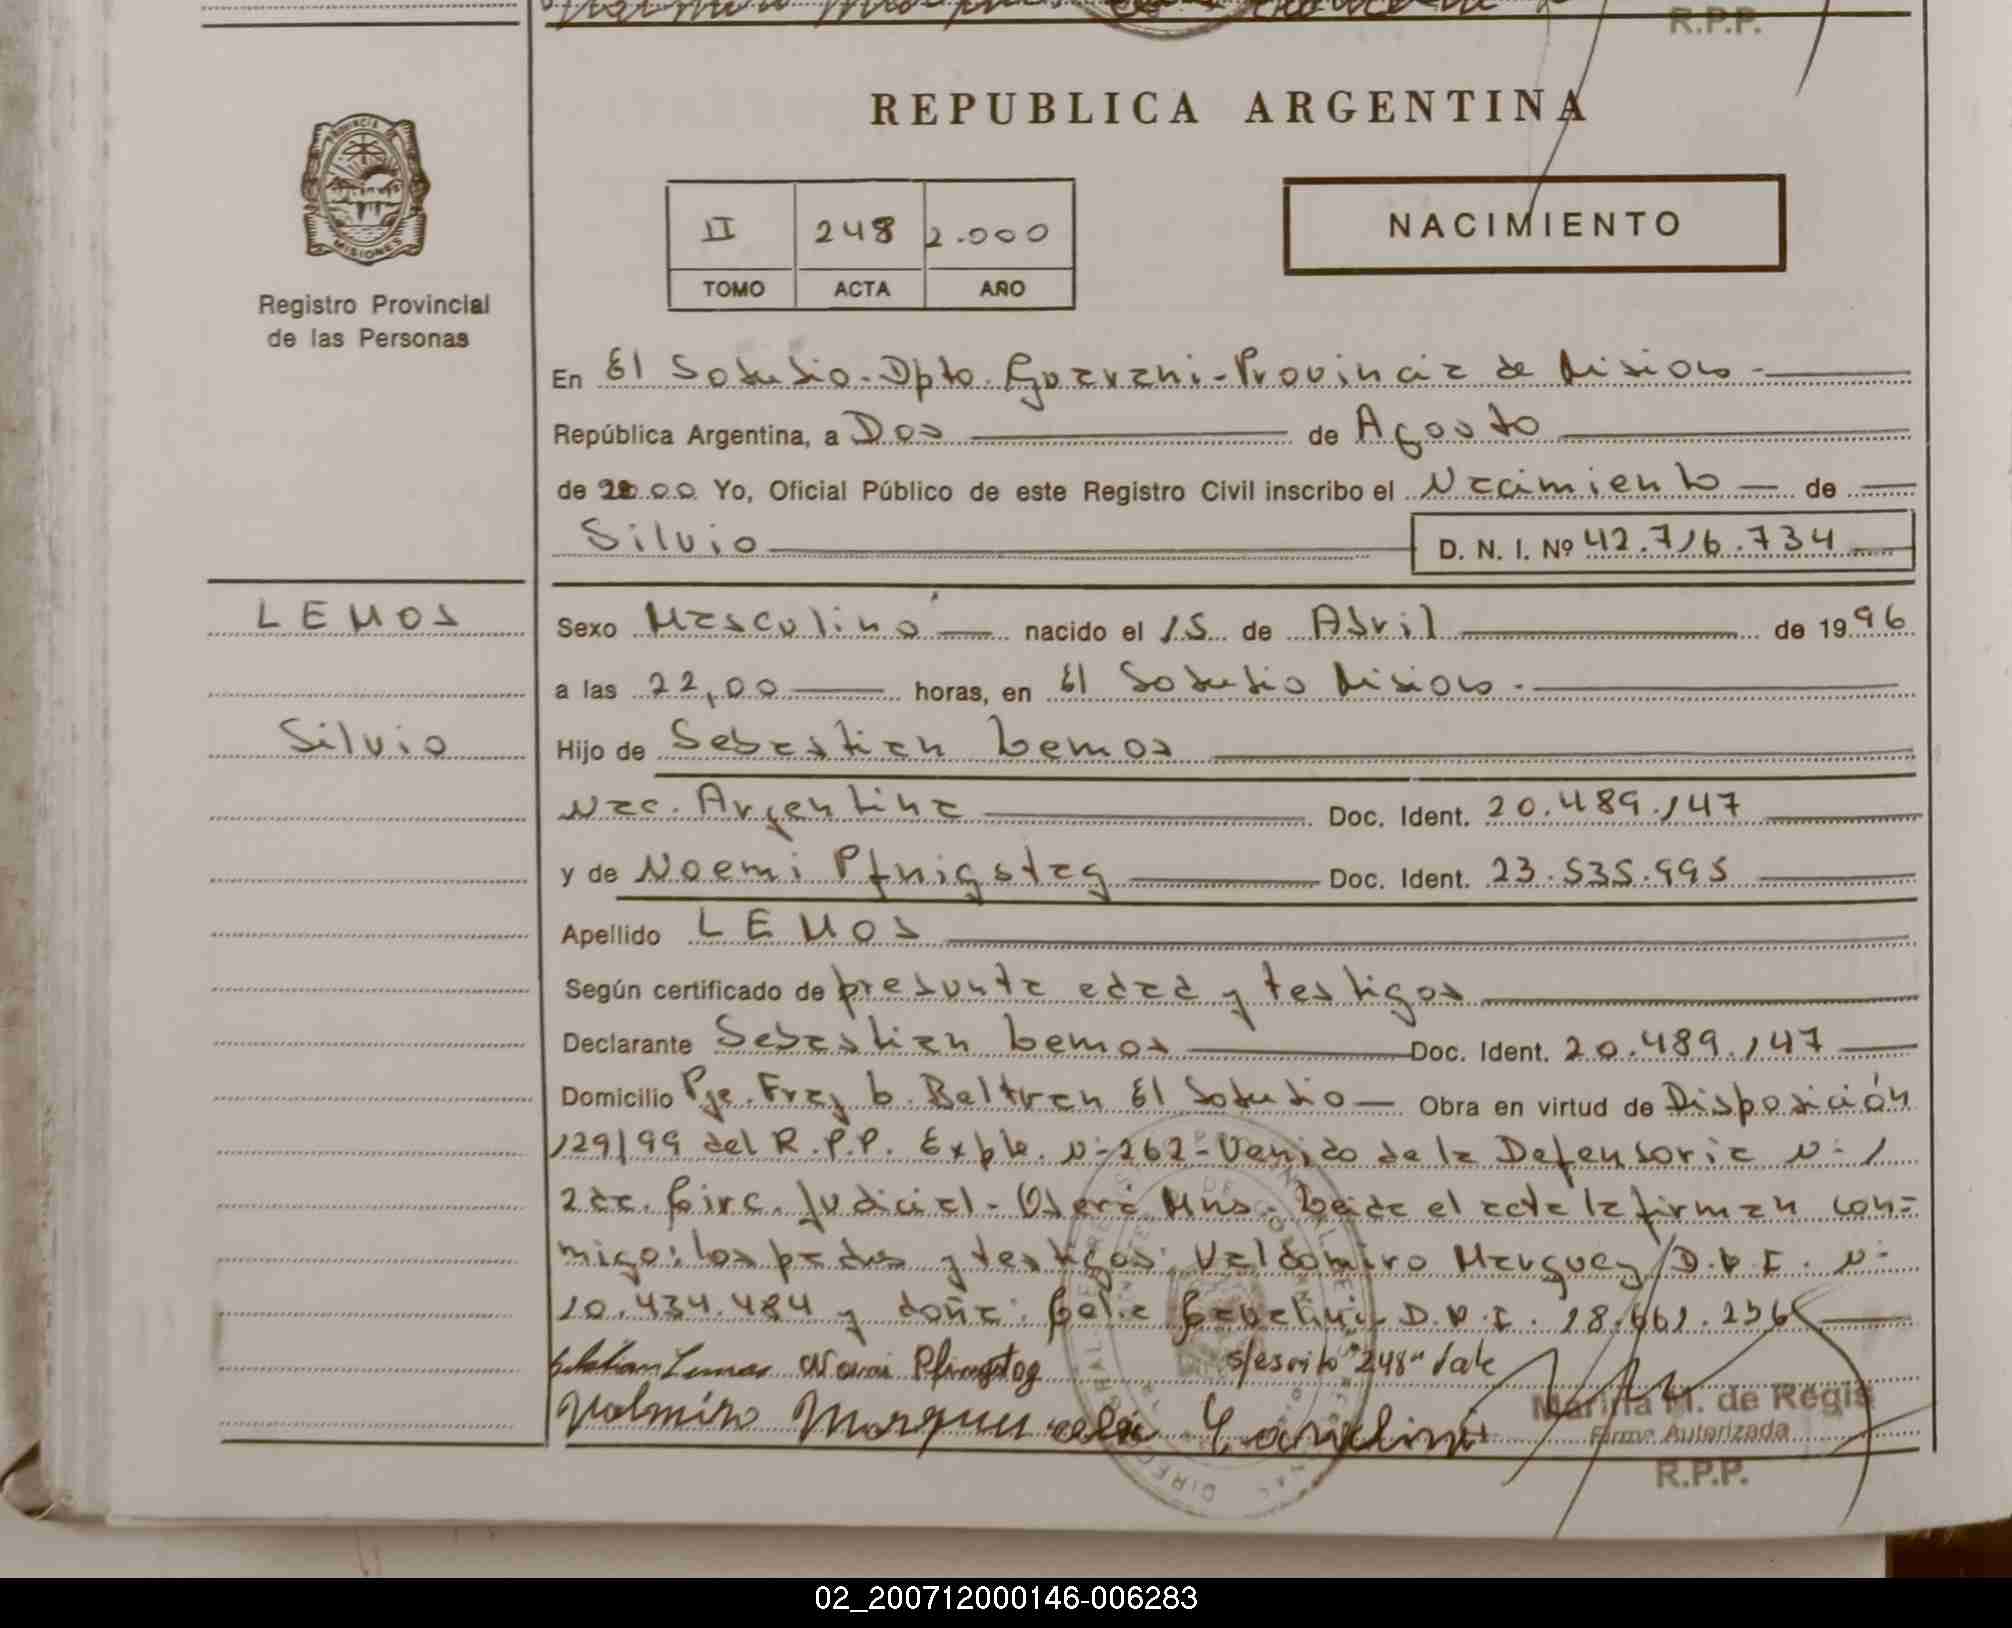 R.P.P.
REPUBLICA ARGENTINA
PROVINCIA DE
MISIONES
Registro Provincial
de las Personas
II 248 2.000
TOMO ACTA AÑO
NACIMIENTO
En El Soberbio - Dpto. Guarani - Provincia de Misiones -
República Argentina, a Dos de Agosto
de 2000 Yo, Oficial Público de este Registro Civil inscribo el Nacimiento de
Silvio D. N. I. Nº 42.716.734
LEMOS
Silvio
Sexo Masculino nacido el 15 de Abril de 1996
a las 22,00 horas, en El Soberbio Misiones -
Hijo de Sebastian Lemos
Nac. Argentina Doc. Ident. 20.489.147
y de Noemi Pfnigstag Doc. Ident. 23.535.995
Apellido LEMOS
Según certificado de presunta edad y testigos
Declarante Sebastian Lemos Doc. Ident. 20.489.147
Domicilio Pje. Fray L. Beltran El Soberbio Obra en virtud de Disposición
129/99 del R.P.P. Expte. Nº 262 - Venido de la Defensoria Nº 1
2da. Circ. Judicial - Oberá Mns. Leida el acta la firman con=
migo: los padres y testigos: Valdomiro Marquez D.N.I. Nº
10.434.484 y doña: Celia D.N.I. 18.661.236
Sebastian Lemos Noemi Pfingstag s/escrito "248" vale
Valmiro Marques celia
Marina M. de Regis
Firma Autorizada
R.P.P.
02_200712000146-006283